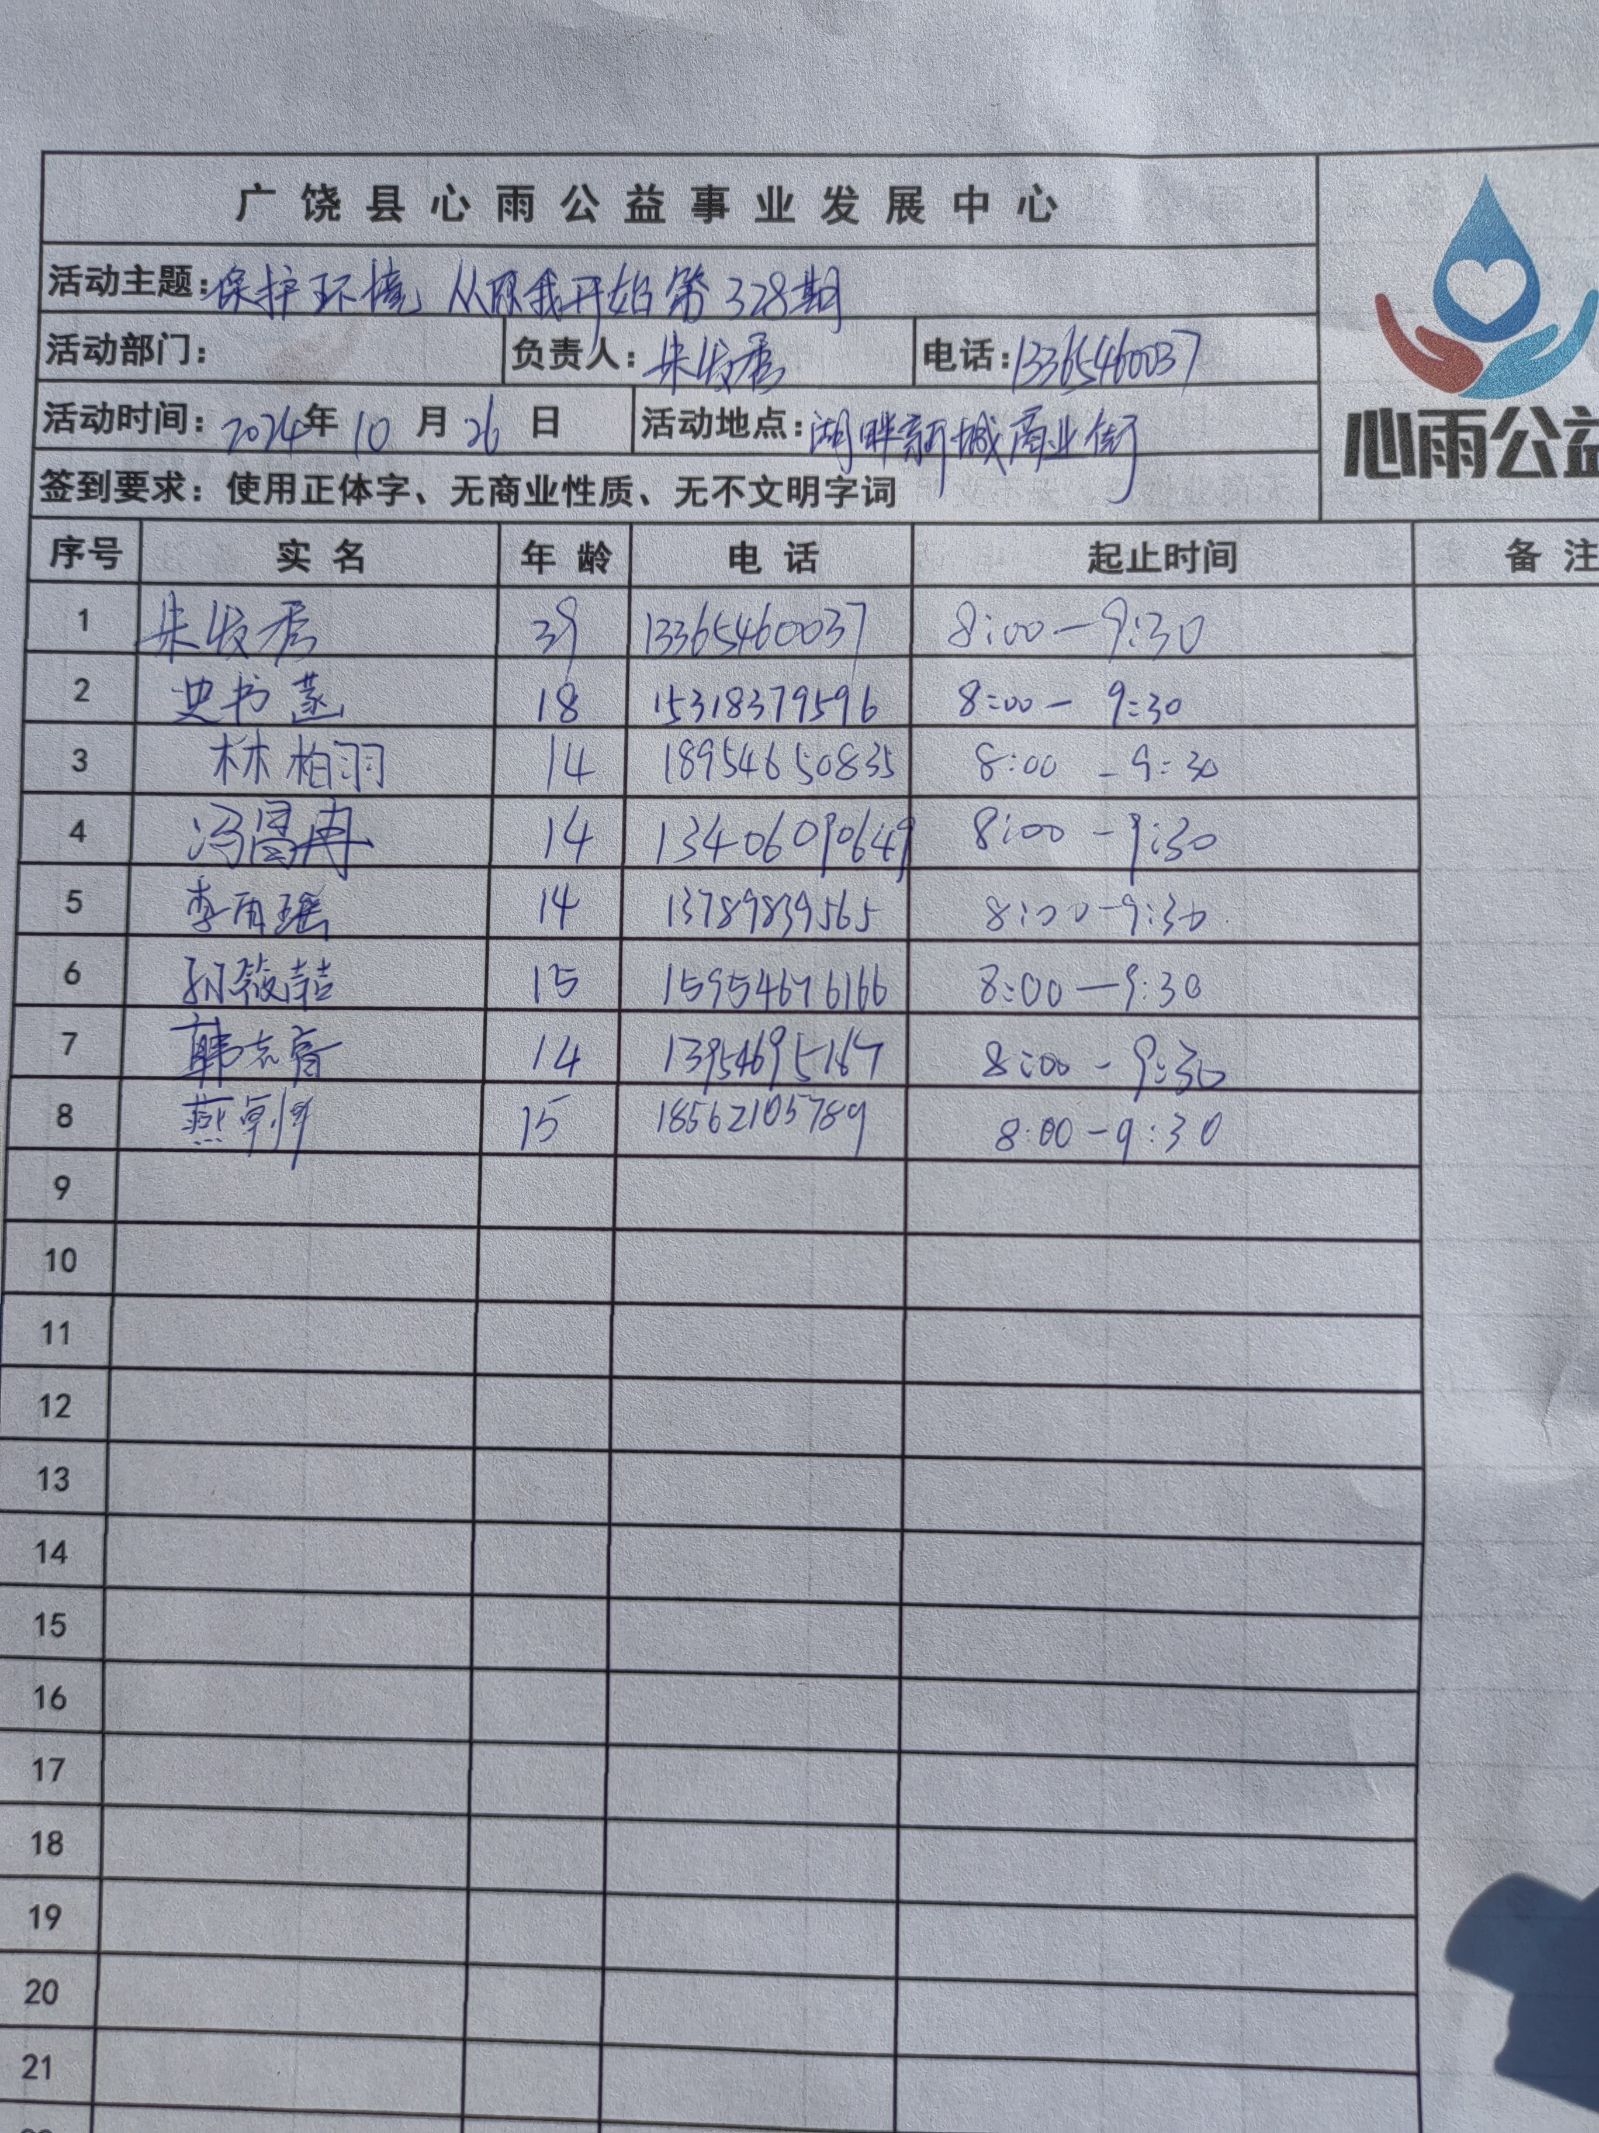 广饶县心雨公益事业发展中心
活动主题：保护环境 从你我开始第328期
活动部门： 负责人：朱发秀 电话：13365460037
活动时间：2024年10月26日 活动地点：湖畔新城商业街
心雨公益
签到要求：使用正体字、无商业性质、无不文明字词
序号 实名 年龄 电话 起止时间 备注
1 朱发秀 39 13365460037 8:00—9:30
2 史书菡 18 15318379596 8:00— 9:30
3 林柏羽 14 18954650835 8:00 -9:30
4 冯 冉 14 13406090649 8:00 -9:30
5 李雨瑶 14 13789839565 8:00-9:30
6 孙筱喆 15 15954676166 8:00—9:30
7 韩志睿 14 13954695167 8:00-9:30
8 燕 15 18562105789 8:00-9:30
9
10
11
12
13
14
15
16
17
18
19
20
21